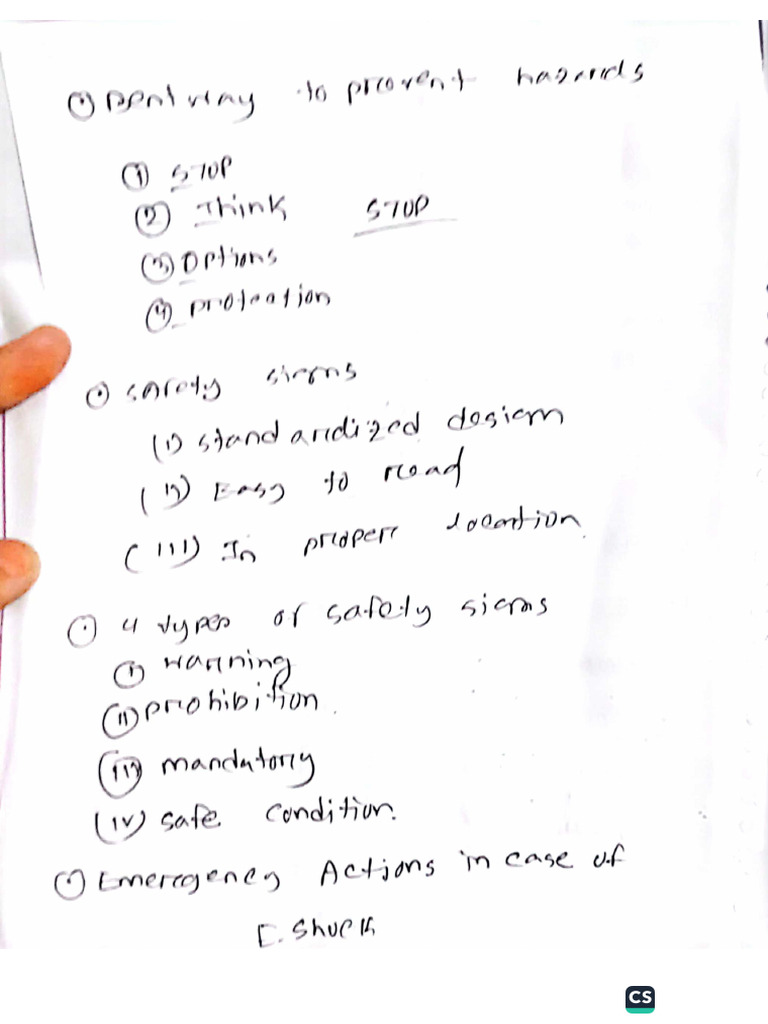 ⊙ Best way to prevent hazards
① STOP
② Think STOP
③ Options
④ protection
⊙ safety signs
(i) standardized design
(ii) Easy to read
(iii) In proper location
⊙ 4 types of safety signs
(i) warning
(ii) prohibition
(iii) mandatory
(iv) safe condition.
⊙ Emergency Actions in case of
E. Shock
CS